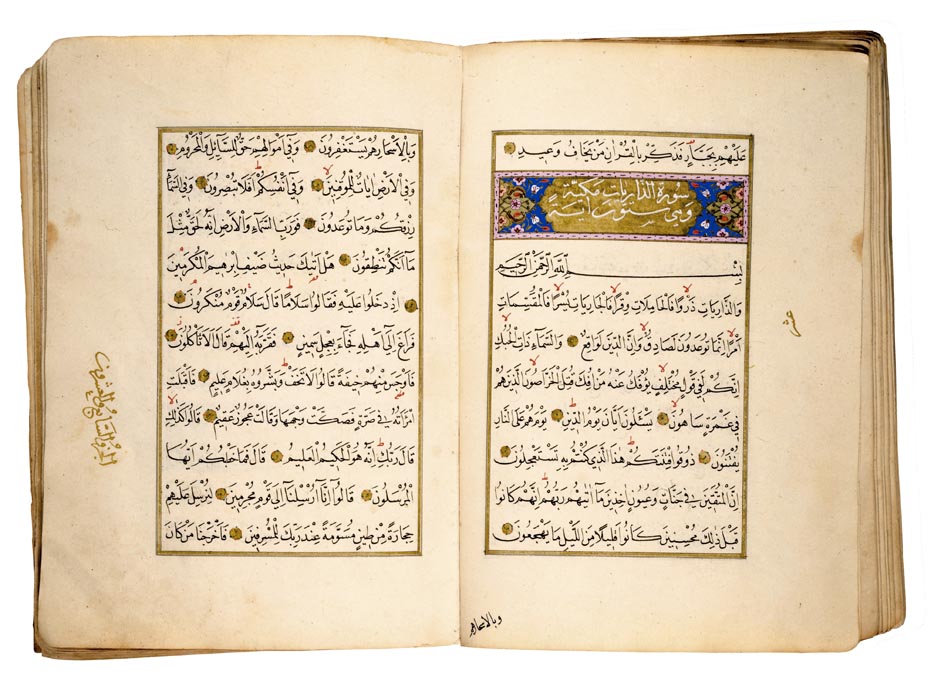 عَلَيْهِمْ بِجَبَّارٍ فَذَكِّرْ بِالْقُرْاٰنِ مَنْ يَخَافُ وَعِيدِ
سورة الذاريات مكية
وهي ستون آية
بِسْمِ اللهِ الرَّحْمٰنِ الرَّحِيمِ
وَالذَّارِيَاتِ ذَرْوًا فَالْحَامِلَاتِ وِقْرًا فَالْجَارِيَاتِ يُسْرًا فَالْمُقَسِّمَاتِ
اَمْرًا اِنَّمَا تُوعَدُونَ لَصَادِقٌ وَاِنَّ الدِّينَ لَوَاقِعٌ وَالسَّمَاءِ ذَاتِ الْحُبُكِ
اِنَّكُمْ لَفِي قَوْلٍ مُخْتَلِفٍ يُؤْفَكُ عَنْهُ مَنْ اُفِكَ قُتِلَ الْخَرَّاصُونَ الَّذِينَ هُمْ
فِي غَمْرَةٍ سَاهُونَ يَسْئَلُونَ اَيَّانَ يَوْمُ الدِّينِ يَوْمَ هُمْ عَلَى النَّارِ
يُفْتَنُونَ ذُوقُوا فِتْنَتَكُمْ هٰذَا الَّذِي كُنْتُمْ بِهِ تَسْتَعْجِلُونَ
اِنَّ الْمُتَّقِينَ فِي جَنَّاتٍ وَعُيُونٍ اٰخِذِينَ مَا اٰتٰيهُمْ رَبُّهُمْ اِنَّهُمْ كَانُوا
قَبْلَ ذٰلِكَ مُحْسِنِينَ كَانُوا قَلِيلًا مِنَ اللَّيْلِ مَا يَهْجَعُونَ
عشر
وبالاسحارهم
وَبِالْاَسْحَارِ هُمْ يَسْتَغْفِرُونَ وَفِي اَمْوَالِهِمْ حَقٌّ لِلسَّائِلِ وَالْمَحْرُومِ
وَفِي الْاَرْضِ اٰيَاتٌ لِلْمُوقِنِينَ وَفِي اَنْفُسِكُمْ اَفَلَا تُبْصِرُونَ وَفِي السَّمَاءِ
رِزْقُكُمْ وَمَا تُوعَدُونَ فَوَرَبِّ السَّمَاءِ وَالْاَرْضِ اِنَّهُ لَحَقٌّ مِثْلَ
مَا اَنَّكُمْ تَنْطِقُونَ هَلْ اَتٰيكَ حَدِيثُ ضَيْفِ اِبْرٰهِيمَ الْمُكْرَمِينَ
اِذْ دَخَلُوا عَلَيْهِ فَقَالُوا سَلَامًا قَالَ سَلَامٌ قَوْمٌ مُنْكَرُونَ
فَرَاغَ اِلٰى اَهْلِهِ فَجَاءَ بِعِجْلٍ سَمِينٍ فَقَرَّبَهُ اِلَيْهِمْ قَالَ اَلَا تَأْكُلُونَ
فَاَوْجَسَ مِنْهُمْ خِيفَةً قَالُوا لَا تَخَفْ وَبَشَّرُوهُ بِغُلَامٍ عَلِيمٍ فَاَقْبَلَتِ
امْرَاَتُهُ فِي صَرَّةٍ فَصَكَّتْ وَجْهَهَا وَقَالَتْ عَجُوزٌ عَقِيمٌ قَالُوا كَذٰلِكِ
قَالَ رَبُّكِ اِنَّهُ هُوَ الْحَكِيمُ الْعَلِيمُ قَالَ فَمَا خَطْبُكُمْ اَيُّهَا
الْمُرْسَلُونَ قَالُوا اِنَّا اُرْسِلْنَا اِلٰى قَوْمٍ مُجْرِمِينَ لِنُرْسِلَ عَلَيْهِمْ
حِجَارَةً مِنْ طِينٍ مُسَوَّمَةً عِنْدَ رَبِّكَ لِلْمُسْرِفِينَ فَاَخْرَجْنَا مَنْ كَانَ
الجزء السابع والعشرون